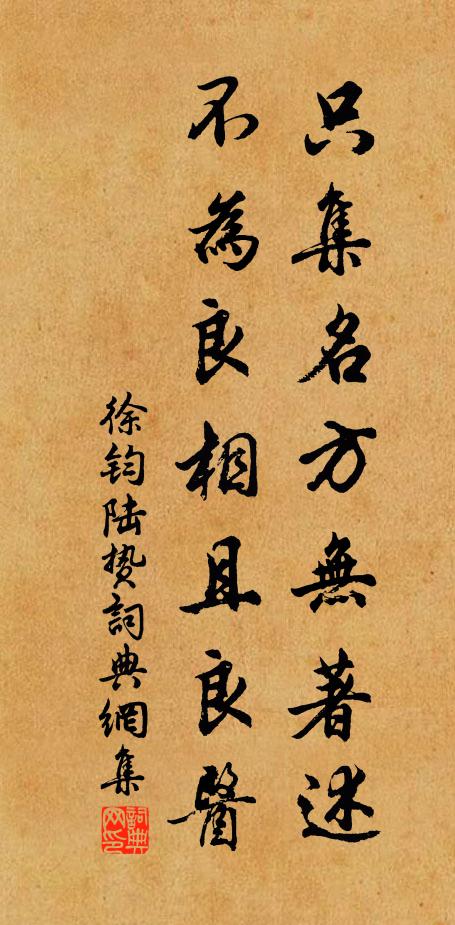 只集名方無著述
不為良相且良醫
徐钧陆贽詞典網集
詞典网印